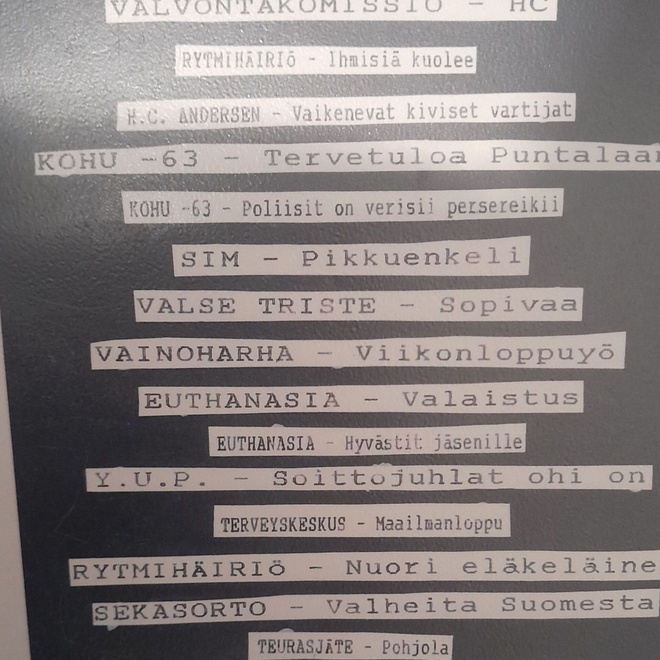 VALVONTAKOMISSIO - HC
RYTMIHÄIRIÖ - Ihmisiä kuolee
H.C. ANDERSEN - Vaikenevat kiviset vartijat
KOHU -63 - Tervetuloa Puntalaan
KOHU -63 - Poliisit on verisii persereikii
SIM - Pikkuenkeli
VALSE TRISTE - Sopivaa
VAINOHARHA - Viikonloppuyö
EUTHANASIA - Valaistus
EUTHANASIA - Hyvästit jäsenille
Y.U.P. - Soittojuhlat ohi on
TERVEYSKESKUS - Maailmanloppu
RYTMIHÄIRIÖ - Nuori eläkeläine
SEKASORTO - Valheita Suomesta
TEURASJÄTE - Pohjola